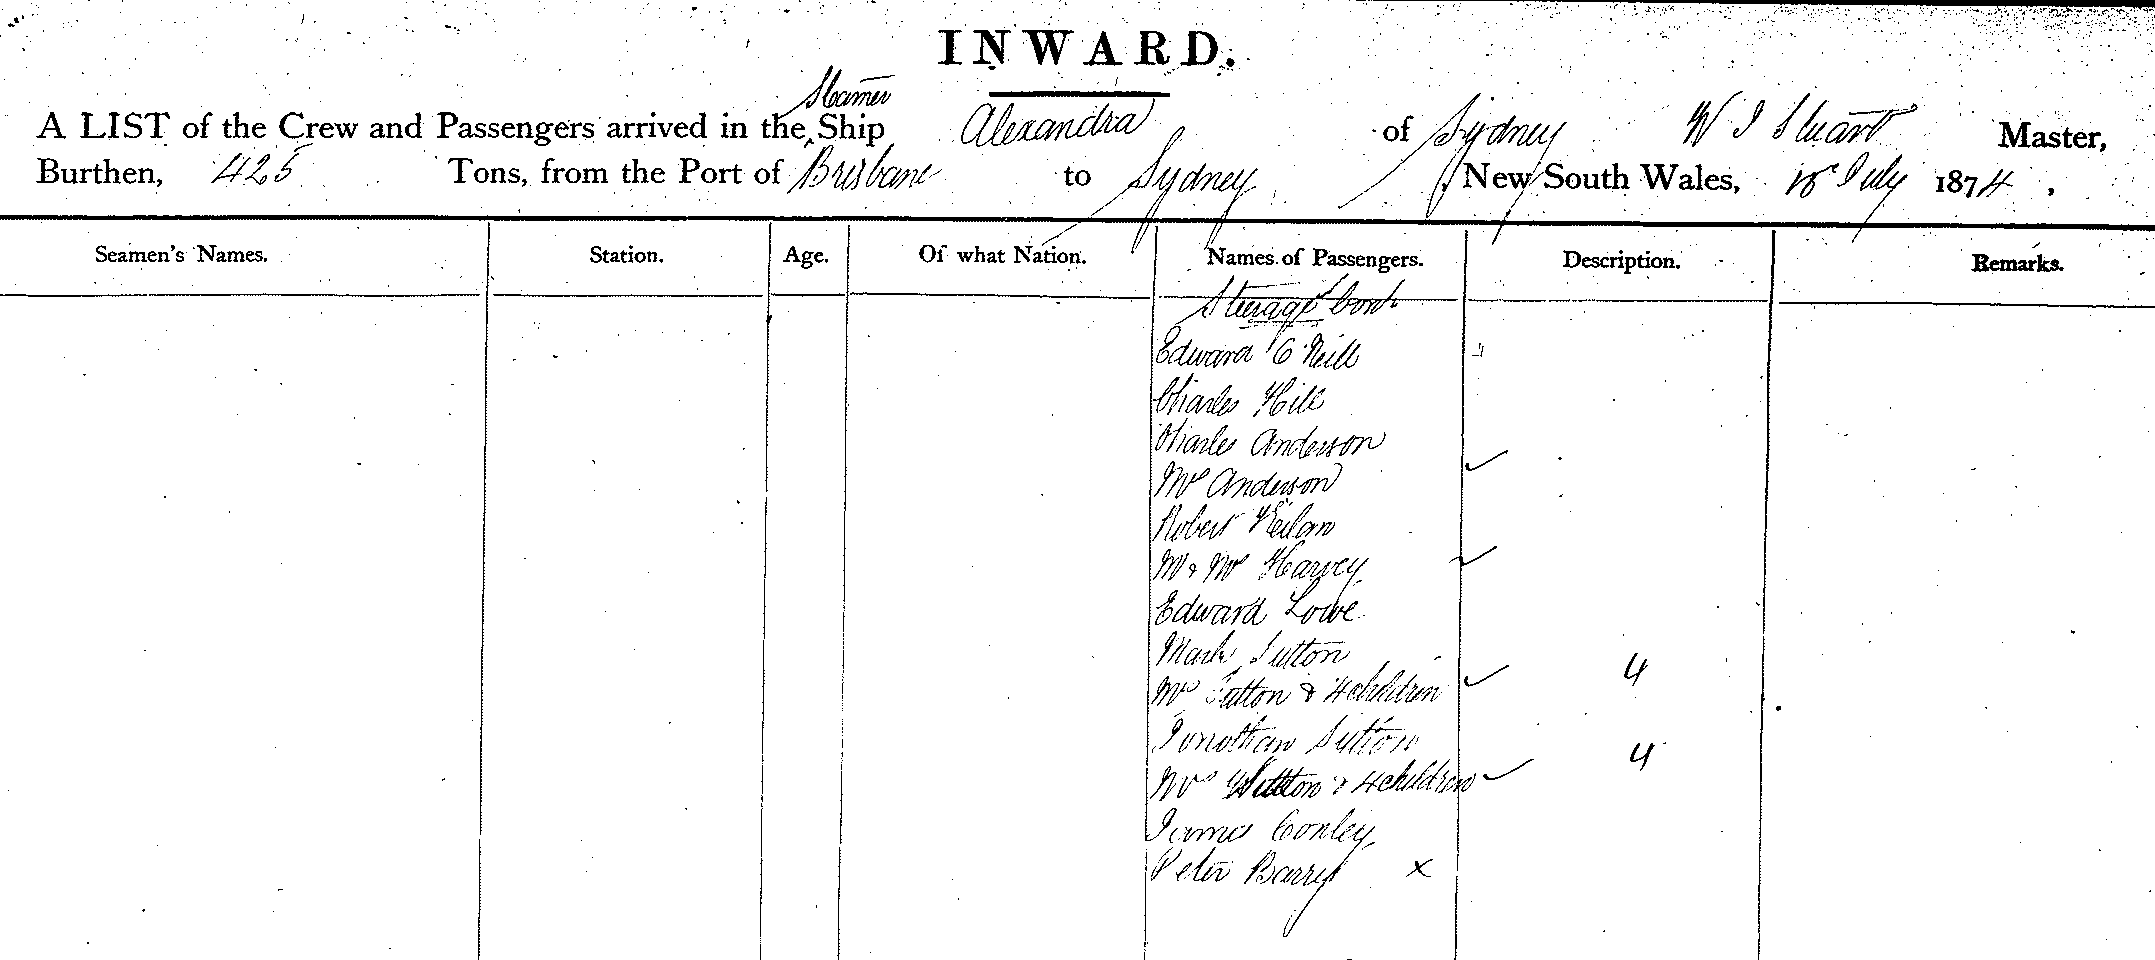 INWARD.
Steamer
A LIST of the Crew and Passengers arrived in the Ship Alexandra of Sydney W J Stuart Master,
Burthen, 425 Tons, from the Port of Brisbane to Sydney, New South Wales, July 1874.
Seamen's Names. Station. Age. Of what Nation. Names of Passengers. Description. Remarks.
Steerage Cont
Edward O'Neill "
Charles Hill
Charles Anderson
Mrs Anderson
Robert
Mr & Mrs Harvey
Edward Lowe
Mark Sutton
Mrs Sutton & 4 children 4
Jonathan Sutton
Mrs Sutton & 4 children 4
James Conley
Peter Barry x